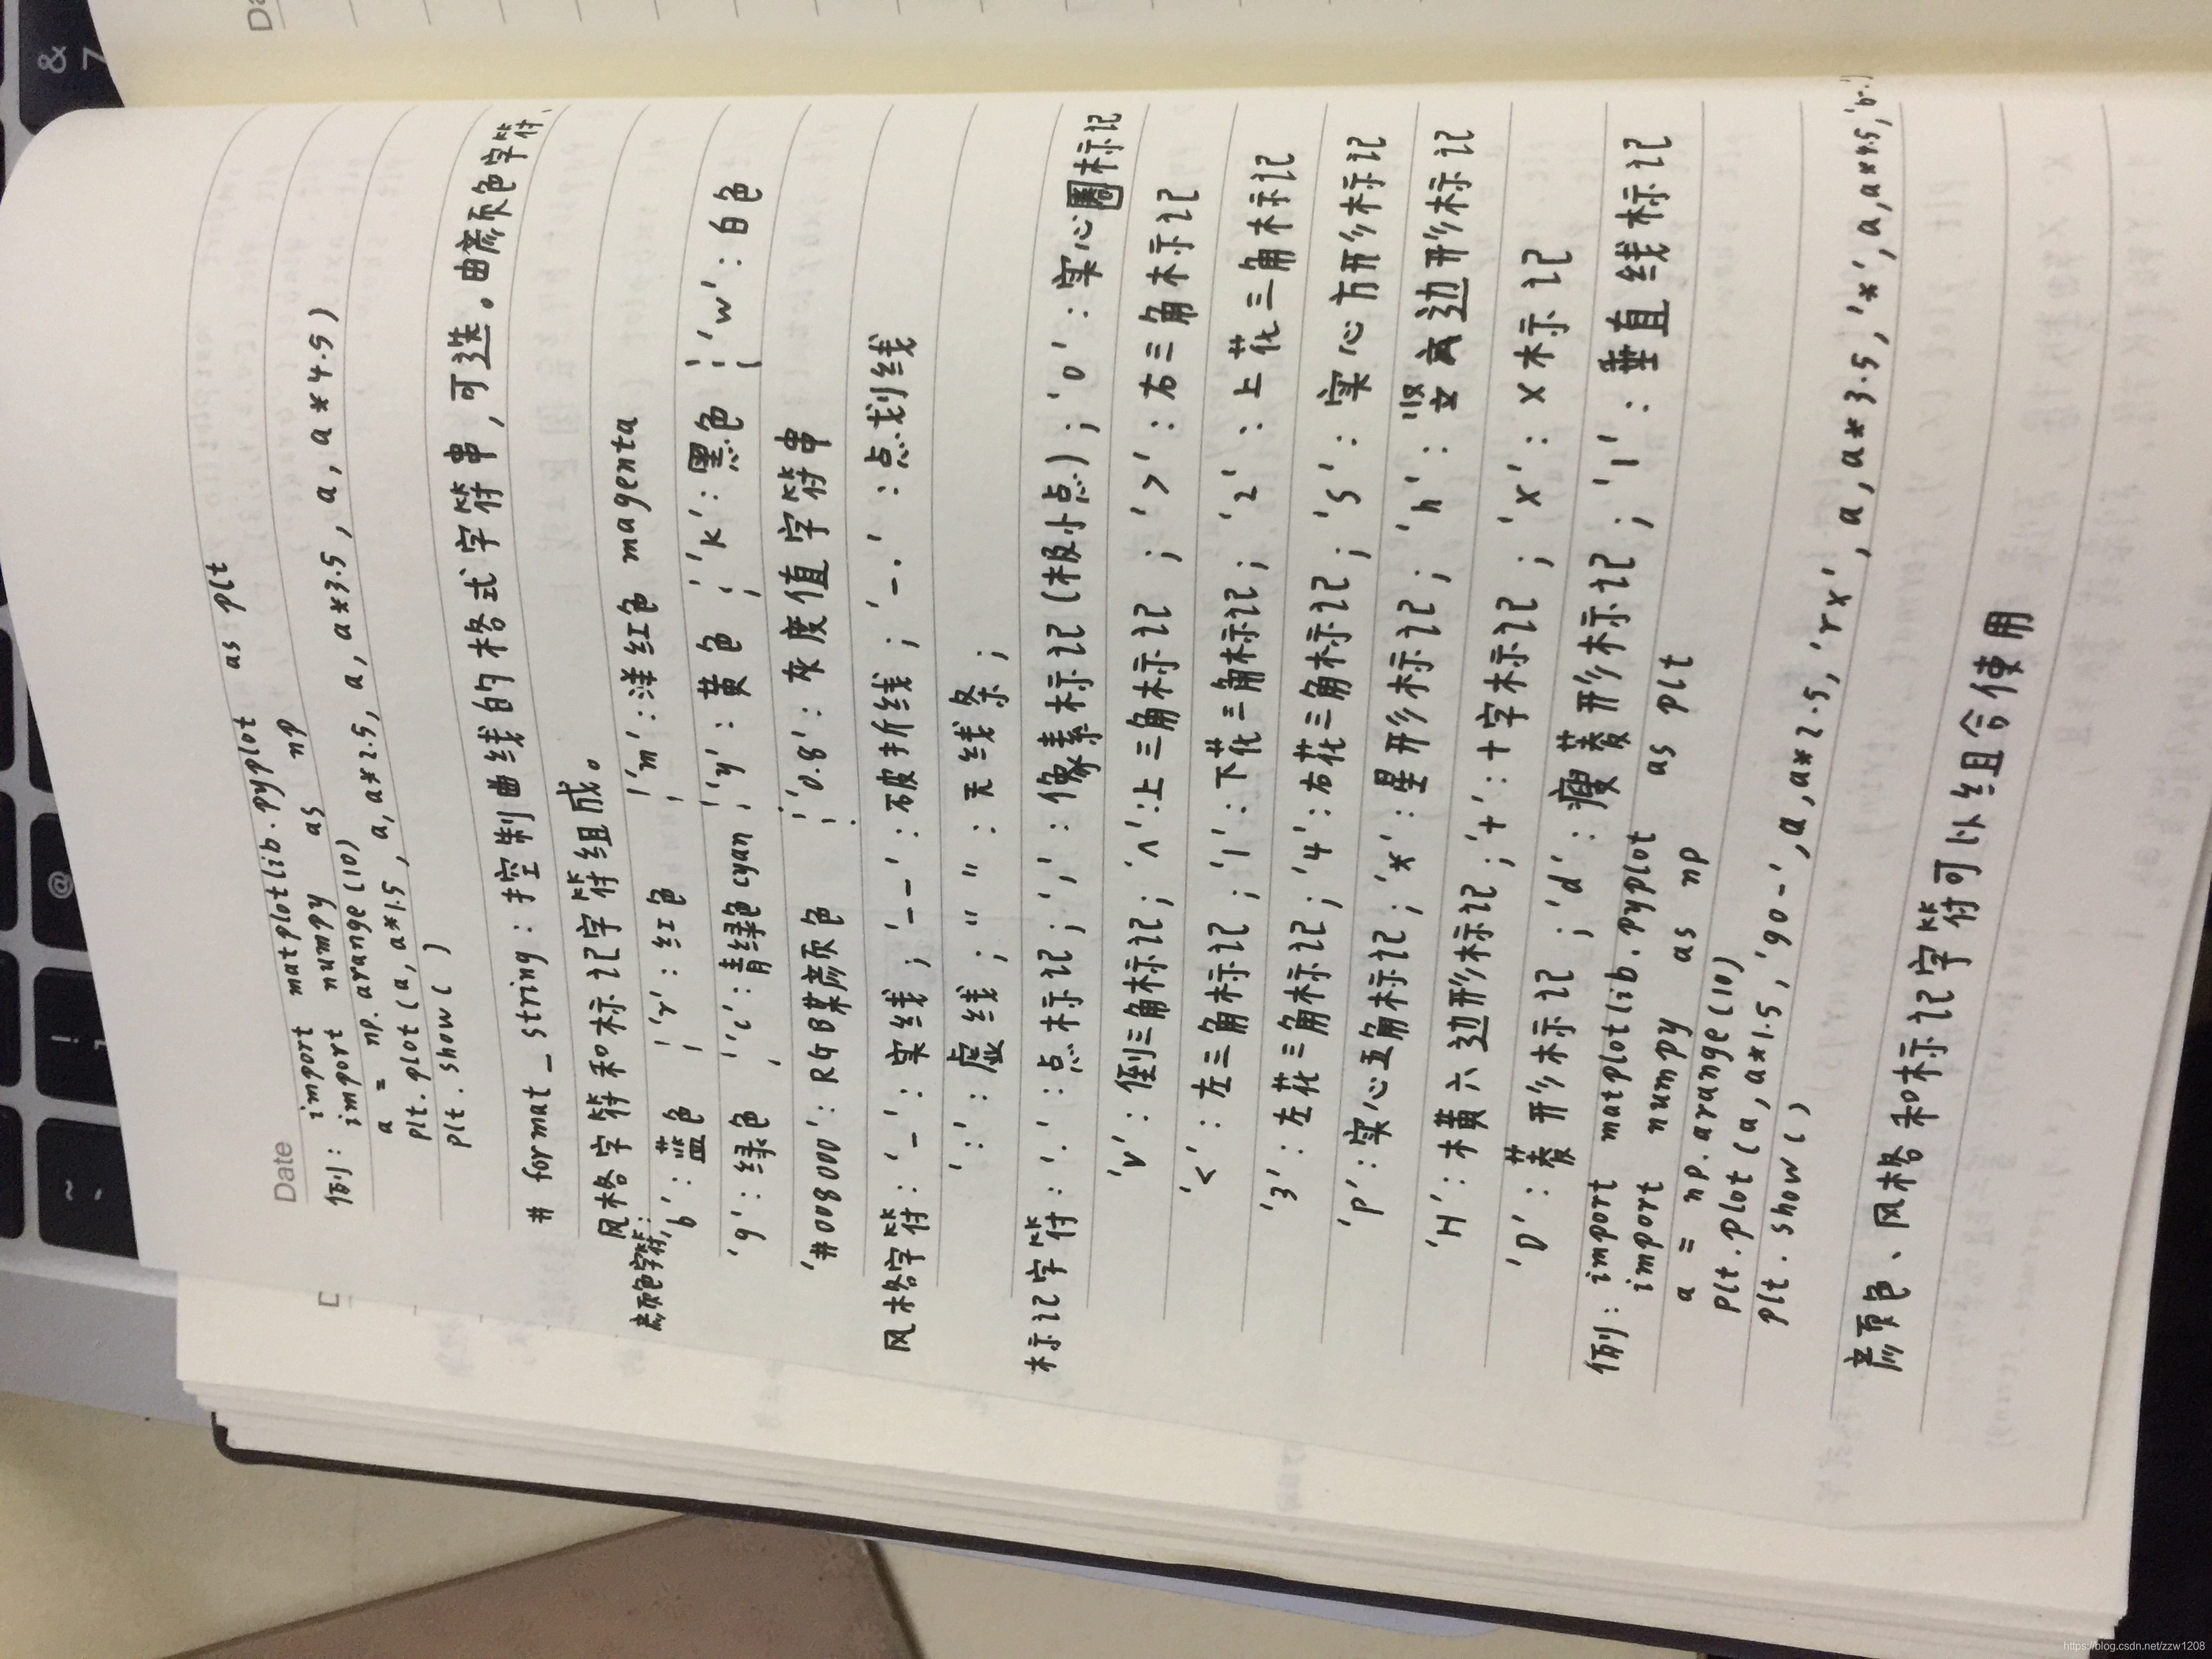 Date
例: import matplotlib.pyplot as plt
import numpy as np
a = np.arange(10)
plt.plot(a, a*1.5, a, a*2.5, a, a*3.5, a, a*4.5)
plt.show( )
# format_string: 控制曲线的格式字符串,可选。由颜色字符、
风格字符和标记字符组成。
颜色字符: 'b': 蓝色 ; 'r': 红色 ; 'm': 洋红色 magenta
'g': 绿色 ; 'c': 青绿色cyan ; 'y': 黄色 ; 'k': 黑色 ; 'w': 白色
'#008000': RGB某颜色 ; '0.8': 灰度值字符串
风格字符: '-': 实线; '--': 破折线; '-.': 点划线
':': 虚线; '' '' : 无线条;
标记字符: '.': 点标记; ',': 像素标记(极小点); 'o': 实心圈标记
'v': 倒三角标记; '^': 上三角标记; '>': 右三角标记
'<': 左三角标记; '1': 下花三角标记; '2': 上花三角标记
'3': 左花三角标记; '4': 右花三角标记; 's': 实心方形标记
'p': 实心五角标记; '*': 星形标记; 'h': 竖六边形标记
'H': 横六边形标记; '+': 十字标记; 'x': x标记
'D': 菱形标记; 'd': 瘦菱形标记; '|': 垂直线标记
例: import matplotlib.pyplot as plt
import numpy as np
a = np.arange(10)
plt.plot(a, a*1.5, 'go-', a, a*2.5, 'rx', a, a*3.5, '*', a, a*4.5, 'b-.')
plt.show( )
颜色、风格和标记字符可以组合使用
& 7
@
!
~
https://blog.csdn.net/zzw1208